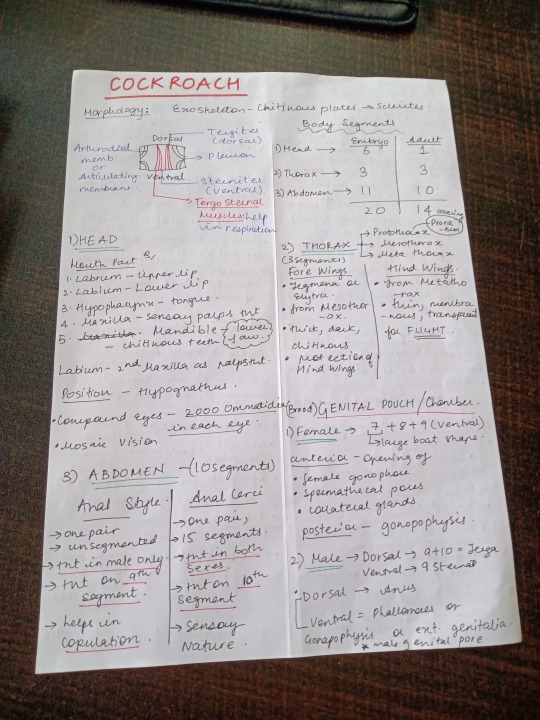 COCKROACH
Morphology: Exoskeleton - Chitinous plates → Sclerites
Dorsal
Arthrodeal
memb.
or
articulating
membrane.
ventral
Tergites
(dorsal)
Pleuron
Sternites
(ventral)
Tergo Sternal
Muscles: help
in respiration
Body Segments
Embryo Adult
1) Head → 6 1
2) Thorax → 3 3
3) Abdomen → 11 10
20 14
1) HEAD
Mouth Part
1. Labrum - Upper lip
2. Labium - Lower lip
3. Hypopharynx - tongue.
4. Maxilla - sensory palps tnt
5. Mandible - lower jaw.
- chitinous teeth
Labium - 2nd Maxilla as palps tnt.
Position - Hypognathus.
• Compound Eyes - 2000 Ommatidia
in each eye.
• Mosaic Vision
2) THORAX → Prothorax → covering Pronotum
(3 segments) → Mesothorax
→ Meta thorax
Fore Wings
• Tegmena or
Elytra.
• from Mesothor
-ax.
• thick, dark,
chitinous
• protection of
Hind Wings
Hind Wings.
• from Metatho
-rax
• thin, membra
-nous, transparent
for FLIGHT.
3) ABDOMEN - (10 segments)
Anal Style.
→ one pair
→ unsegmented
→ tnt in male only
→ tnt on 9th
segment.
→ helps in
copulation.
Anal Cerci
→ one pair,
→ 15 segments.
→ tnt in both
sexes.
→ tnt on 10th
segment
→ Sensory
Nature.
(Brood) GENITAL POUCH / Chamber.
1) Female → 7 + 8 + 9 (ventral)
↳ large boat shape.
anterior - Opening of
• female gonophore
• spermathecal pores
• collateral glands
posterior - gonopophysis.
2) Male → Dorsal → 9+10 = Terga
Ventral → 9 Sternal
Dorsal → anus
Ventral = Phallomeres or
Gonapophysis or ext. genitalia.
* male genital pore